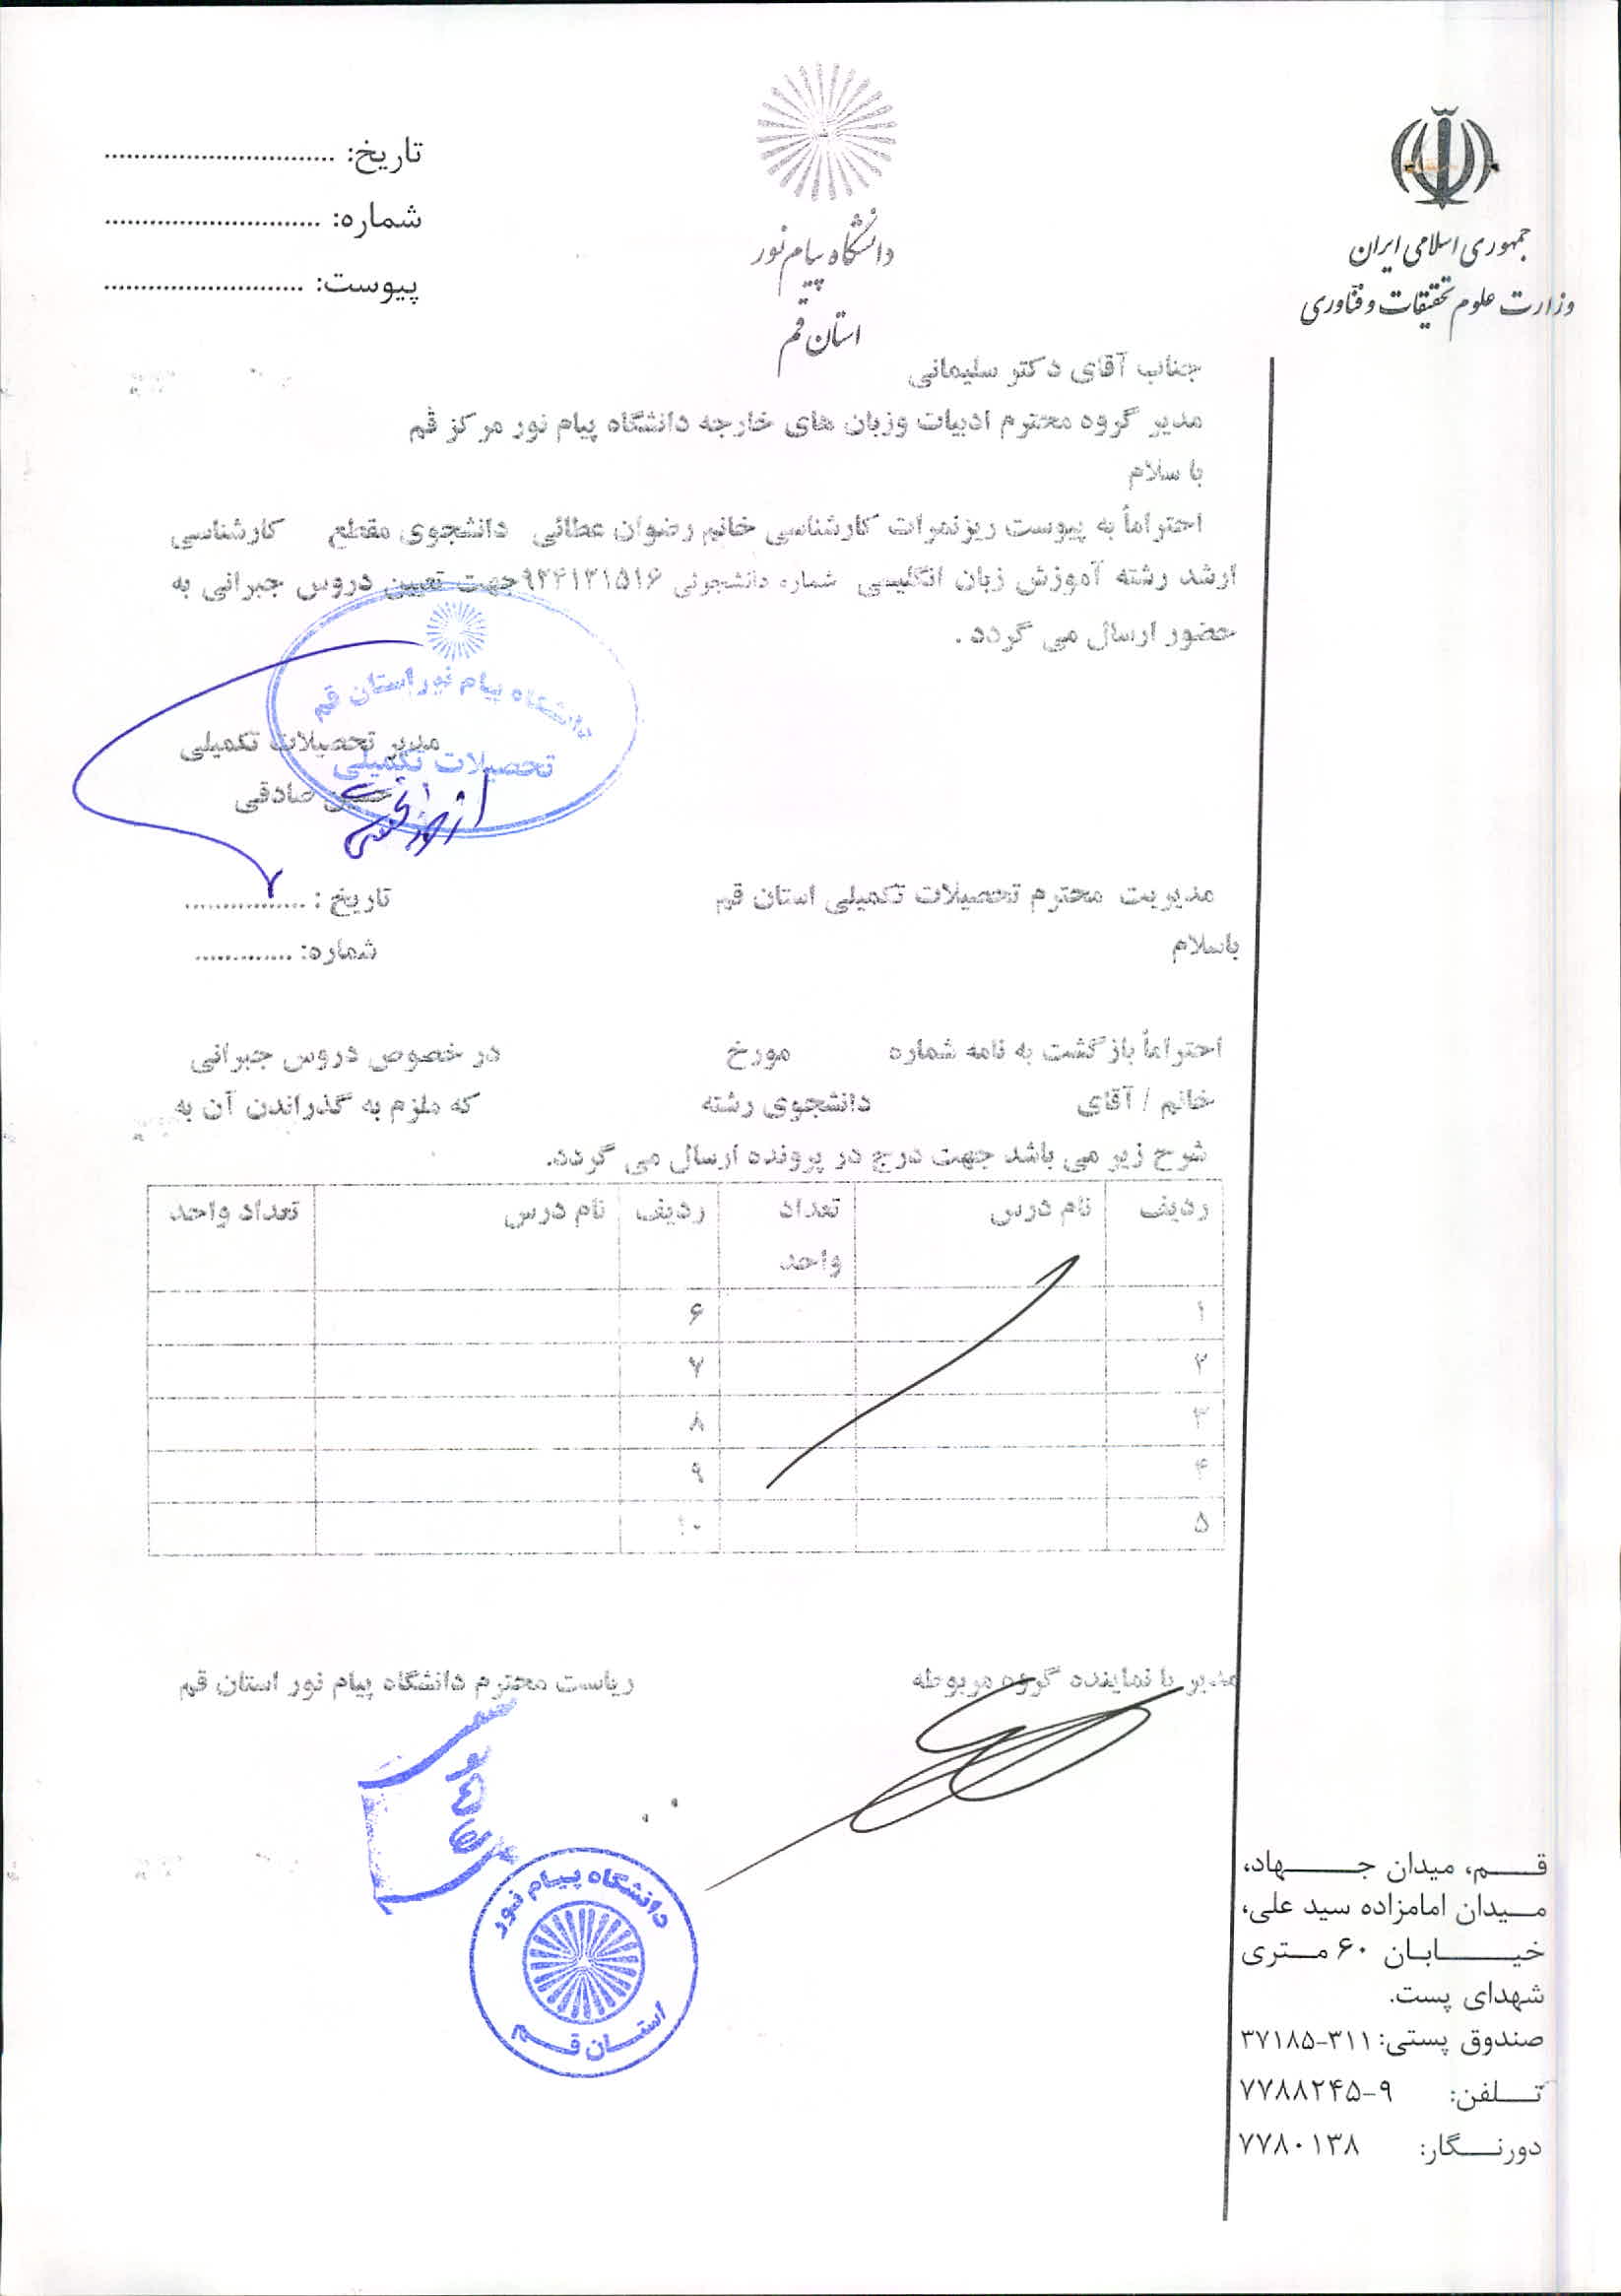 جمهوری اسلامی ایران
وزارت علوم تحقیقات و فنآوری
دانشگاه پیام نور
استان قم
تاریخ: ................................
شماره: ..............................
پیوست: ............................
جناب آقای دکتر سلیمانی
مدیر گروه محترم ادبیات وزبان های خارجه دانشگاه پیام نور مرکز قم
با سلام
احتراماً به پیوست ریزنمرات کارشناسی خانم رضوان عطائی دانشجوی مقطع کارشناسی
ارشد رشته آموزش زبان انگلیسی شماره دانشجوئی ۹۲۴۱۲۱۵۱۶جهت تعیین دروس جبرانی به
حضور ارسال می گردد .
دانشگاه پیام نور استان قم
تحصیلات تکمیلی
مدیر تحصیلات تکمیلی
صادقی
مدیریت محترم تحصیلات تکمیلی استان قم
تاریخ : ................
باسلام
شماره: .............
احتراماً بازگشت به نامه شماره مورخ در خصوص دروس جبرانی
خانم / آقای دانشجوی رشته که ملزم به گذراندن آن به
شرح زیر می باشد جهت درج در پرونده ارسال می گردد.
ردیف نام درس تعداد واحد ردیف نام درس تعداد واحد
۱ ۶
۲ ۷
۳ ۸
۴ ۹
۵ ۱۰
مدیر یا نماینده گروه مربوطه
ریاست محترم دانشگاه پیام نور استان قم
دانشگاه پیام نور
استان قم
قم، میدان جهاد،
میدان امامزاده سید علی،
خیابان ۶۰ متری
شهدای پست.
صندوق پستی: ۳۱۱-۳۷۱۸۵
تلفن: ۹-۷۷۸۸۲۴۵
دورنگار: ۷۷۸۰۱۳۸